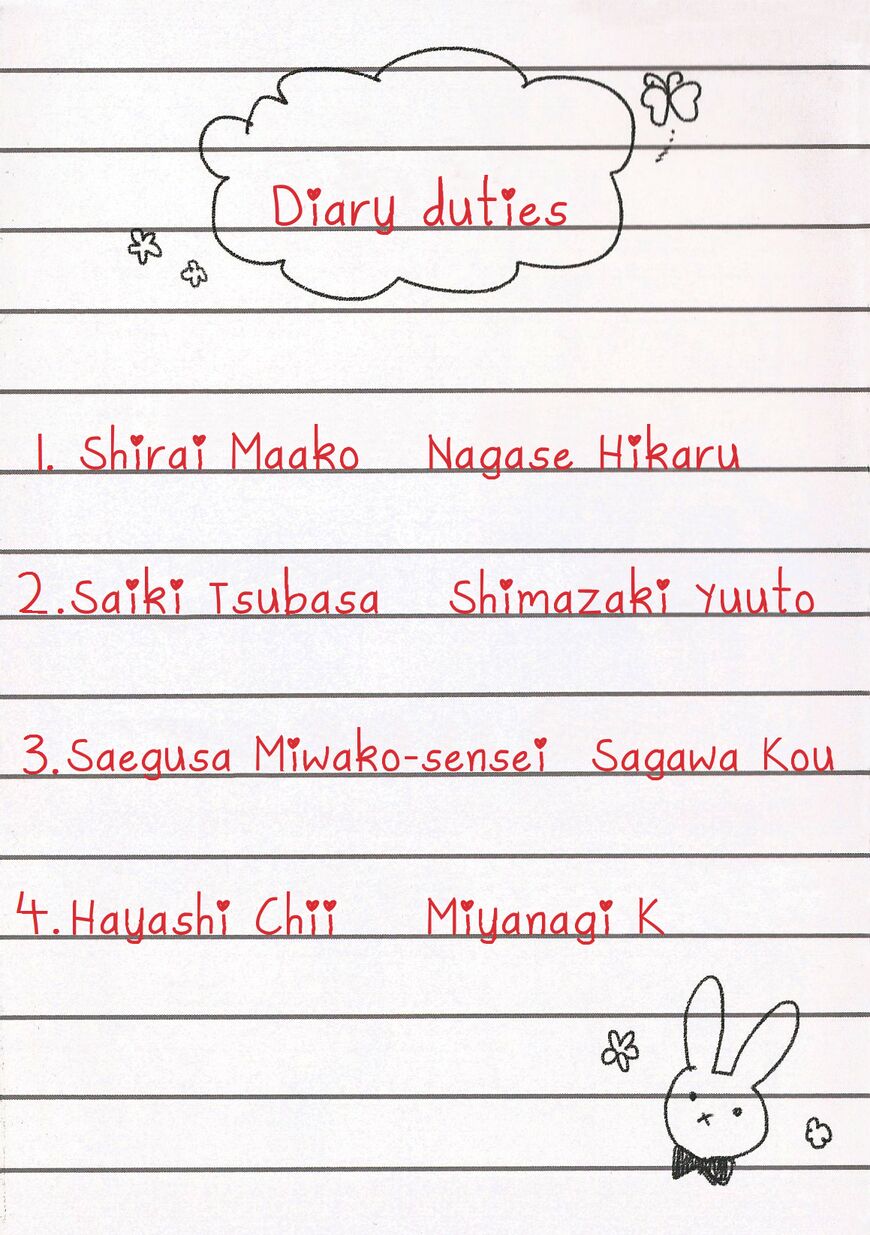 Diary duties
1. Shirai Maako Nagase Hikaru
2. Saiki Tsubasa Shimazaki Yuuto
3. Saegusa Miwako-sensei Sagawa Kou
4. Hayashi Chii Miyanagi K